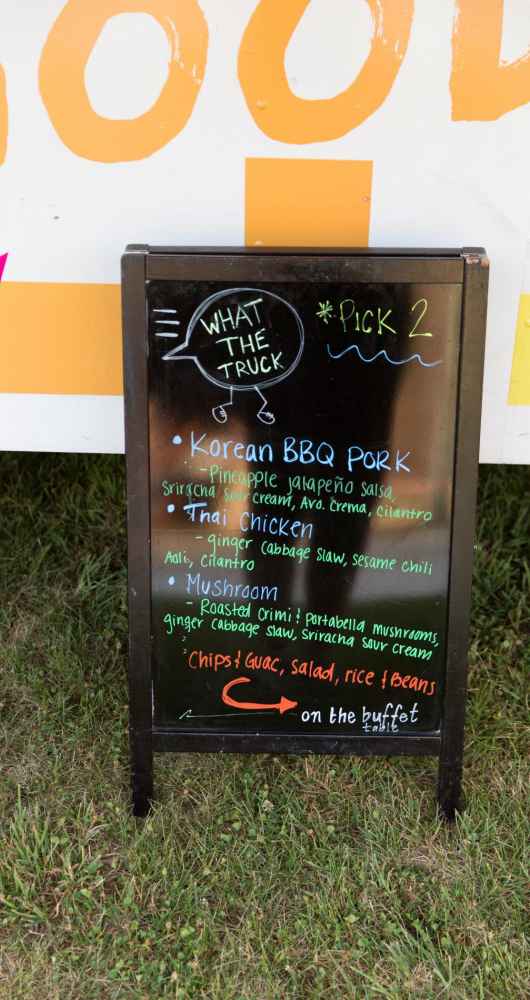 WHAT
THE
TRUCK
*PICK 2
• Korean BBQ PORK
- Pineapple jalapeño salsa,
Sriracha sour cream, Avo. Crema, Cilantro
• Thai Chicken
- ginger cabbage slaw, sesame chili
Aoli, cilantro
• Mushroom
- Roasted Crimi & Portabella mushrooms,
ginger cabbage slaw, Sriracha sour cream
Chips & Guac, salad, rice & Beans
on the buffet
table